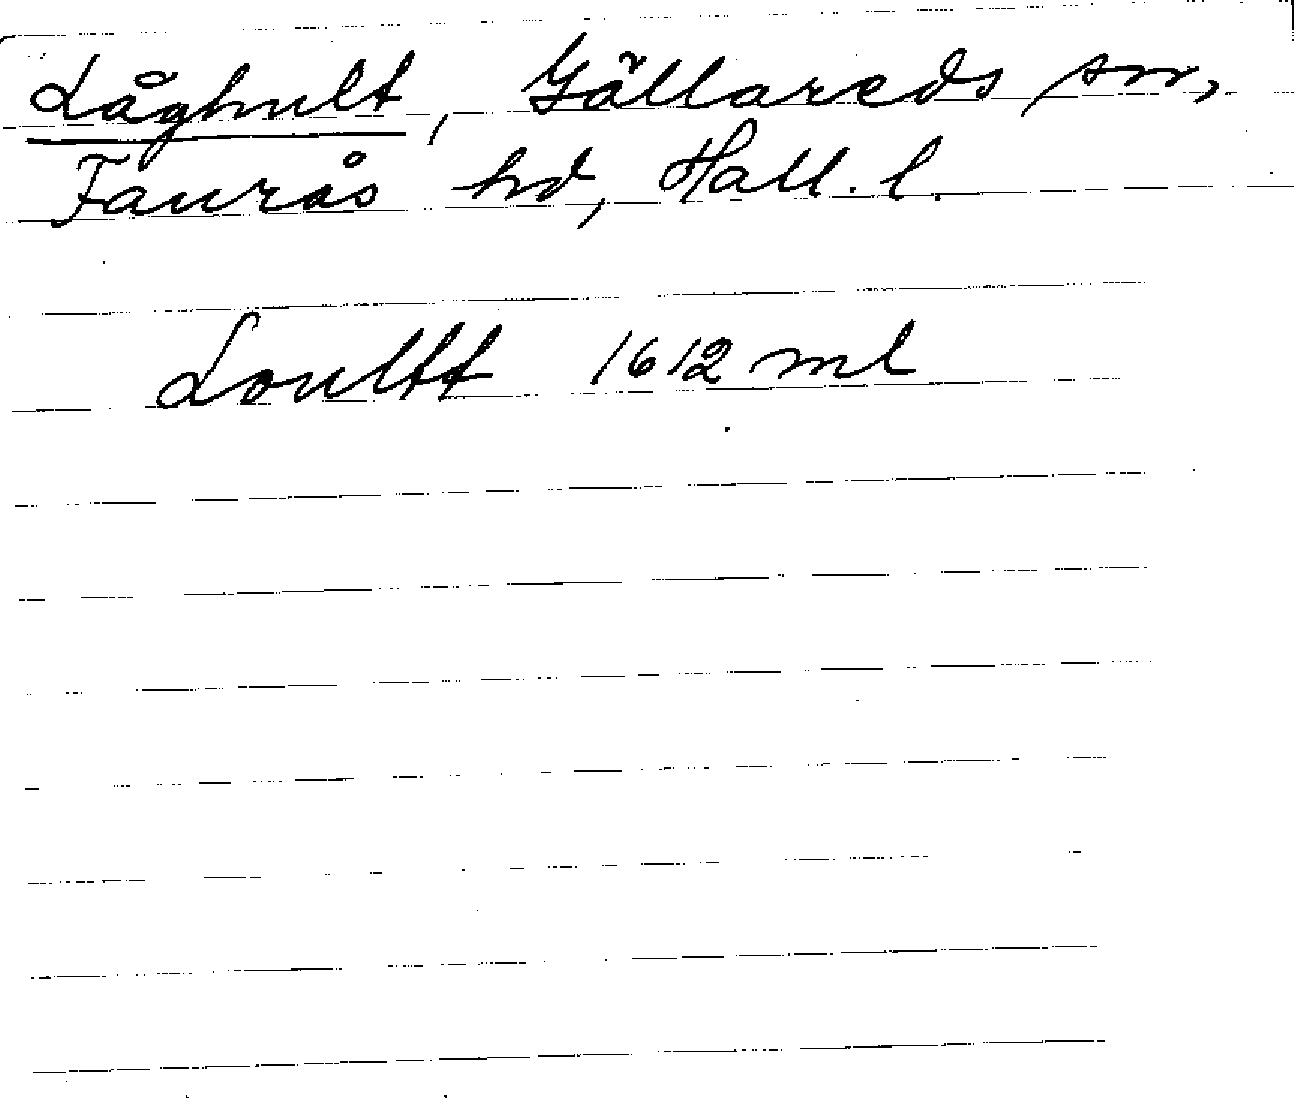 Låghult, Gällareds sn,
Faurås hd, Hall. l.
Loultt 1612 ml